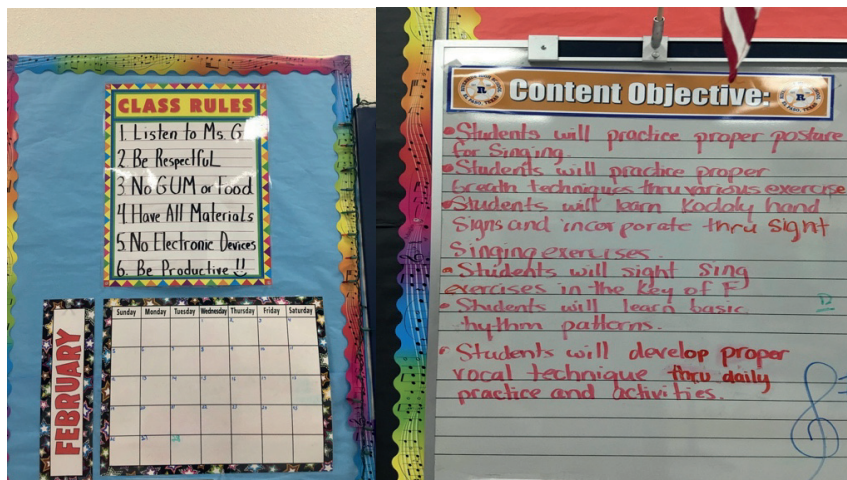 CLASS RULES
1. Listen to Ms. G
2 Be RespectfuL
3 No GUM or Food
4 Have All Materials
5. No Electronic Devices
6. Be Productive !!
FEBRUARY
Sunday Monday Tuesday Wednesday Thursday Friday Saturday
27 28
Content Objective:
R
R
• Students will practice proper posture
for Singing.
• Students will practice proper
breath techniques thru various exercise
• Students will learn Kodaly hand
Signs and incorporate thru Sight
Singing exercises.
• Students will sight sing
exercises in the key of F
• Students will learn basic
rhythm patterns.
• Students will develop proper
vocal technique thru daily
practice and activities.